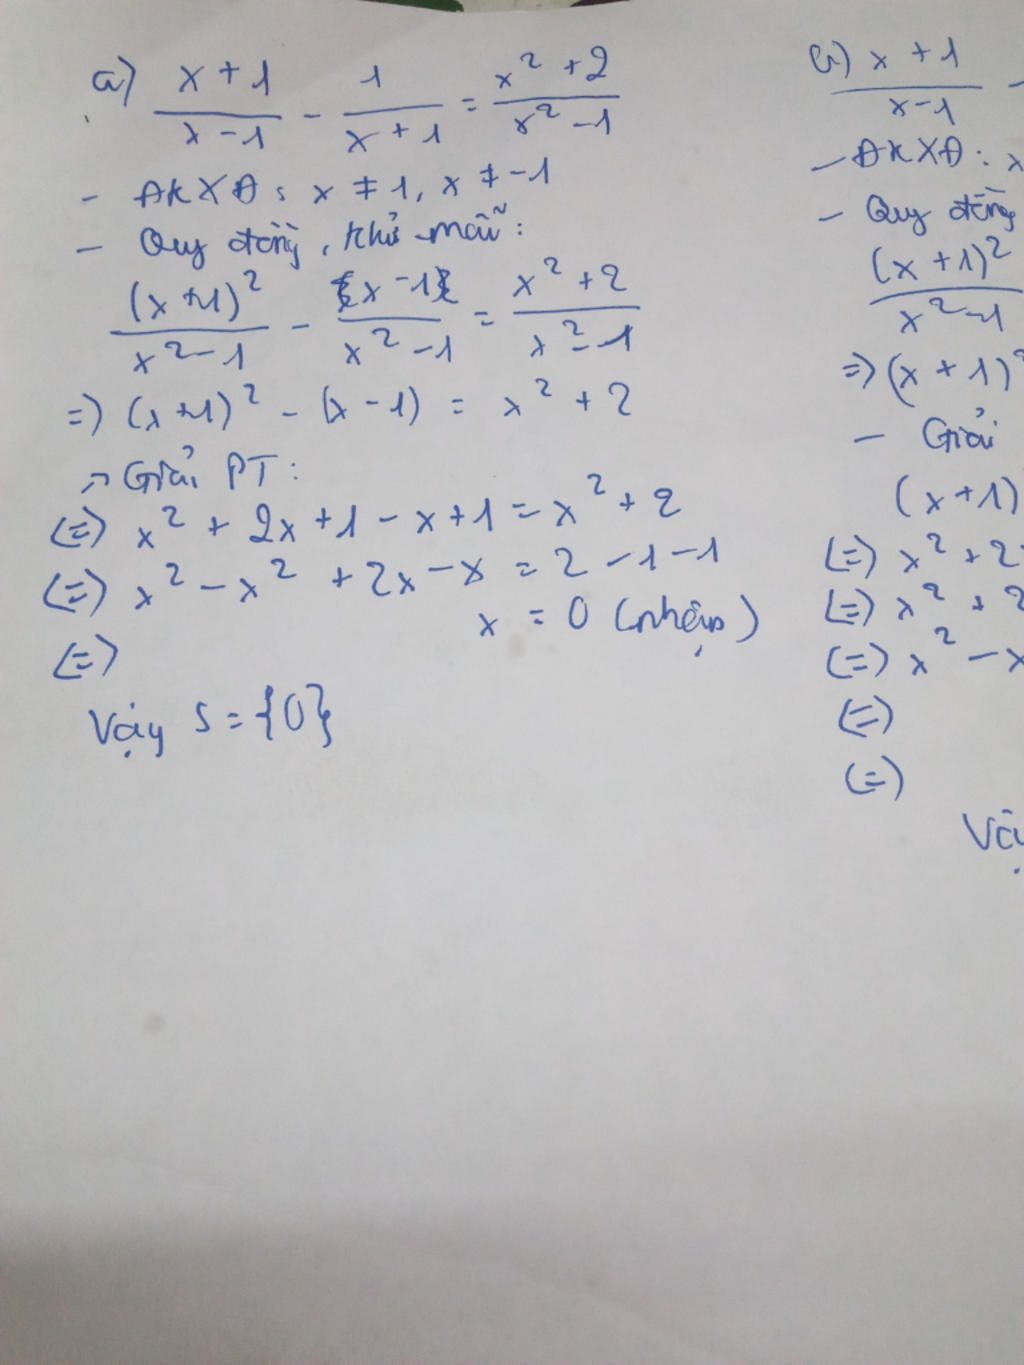 a) x + 1 / x - 1 - 1 / x + 1 = x² + 2 / x² - 1
- ĐKXĐ: x ≠ 1, x ≠ -1
- Quy đồng, khử mẫu:
(x + 1)² / x² - 1 - (x - 1) / x² - 1 = x² + 2 / x² - 1
=> (x + 1)² - (x - 1) = x² + 2
→ Giải PT:
(=) x² + 2x + 1 - x + 1 = x² + 2
(=) x² - x² + 2x - x = 2 - 1 - 1
(=) x = 0 (nhận)
Vậy S = {0}
b) x + 1 / x - 1 -
- ĐKXĐ: x
- Quy đồng
(x + 1)² / x² - 1
=> (x + 1)²
- Giải
(x + 1)
(=) x² + 2
(=) x² + 2
(=) x² - x
(=)
(=)
Vậy